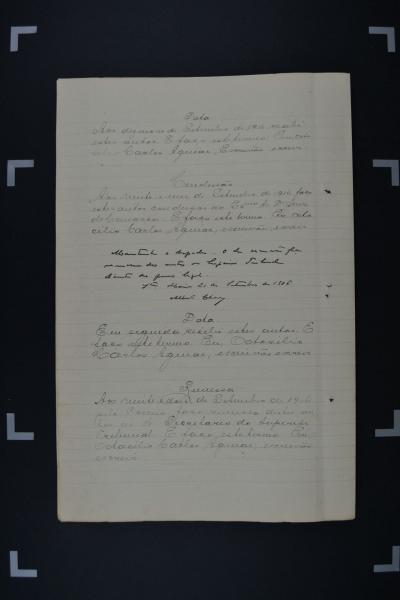 Data
Aos dezenove de Setembro de 1916 recebi
estes autos. E faço este termo. Eu,
Carlos Aguiar, Escrivão escrevi
Conclusão
Aos vinte e um de Setembro de 1916 faço
estes autos conclusos ao Exmo. Sr. Dr. Juiz
de Comarca. E faço este termo. Eu Octa-
cilio Carlos Aguiar, escrivão escrevi
Mantenho o despacho. O Sr. escrivão faça
remessa dos autos ao Superior Tribunal
dentro do prazo legal.
21 de Setembro de 1916
Data
Em seguida recebi estes autos. E
faço este termo. Eu, Octacilio
Carlos Aguiar, escrivão escrevi
Remessa
Aos vinte e dois de Setembro de 1916
pelo Correio faço remessa destes au-
tos ao Sr. Secretario do Superior
Tribunal. E faço este termo. Eu,
Octacilio Carlos Aguiar, escrivão
escrevi